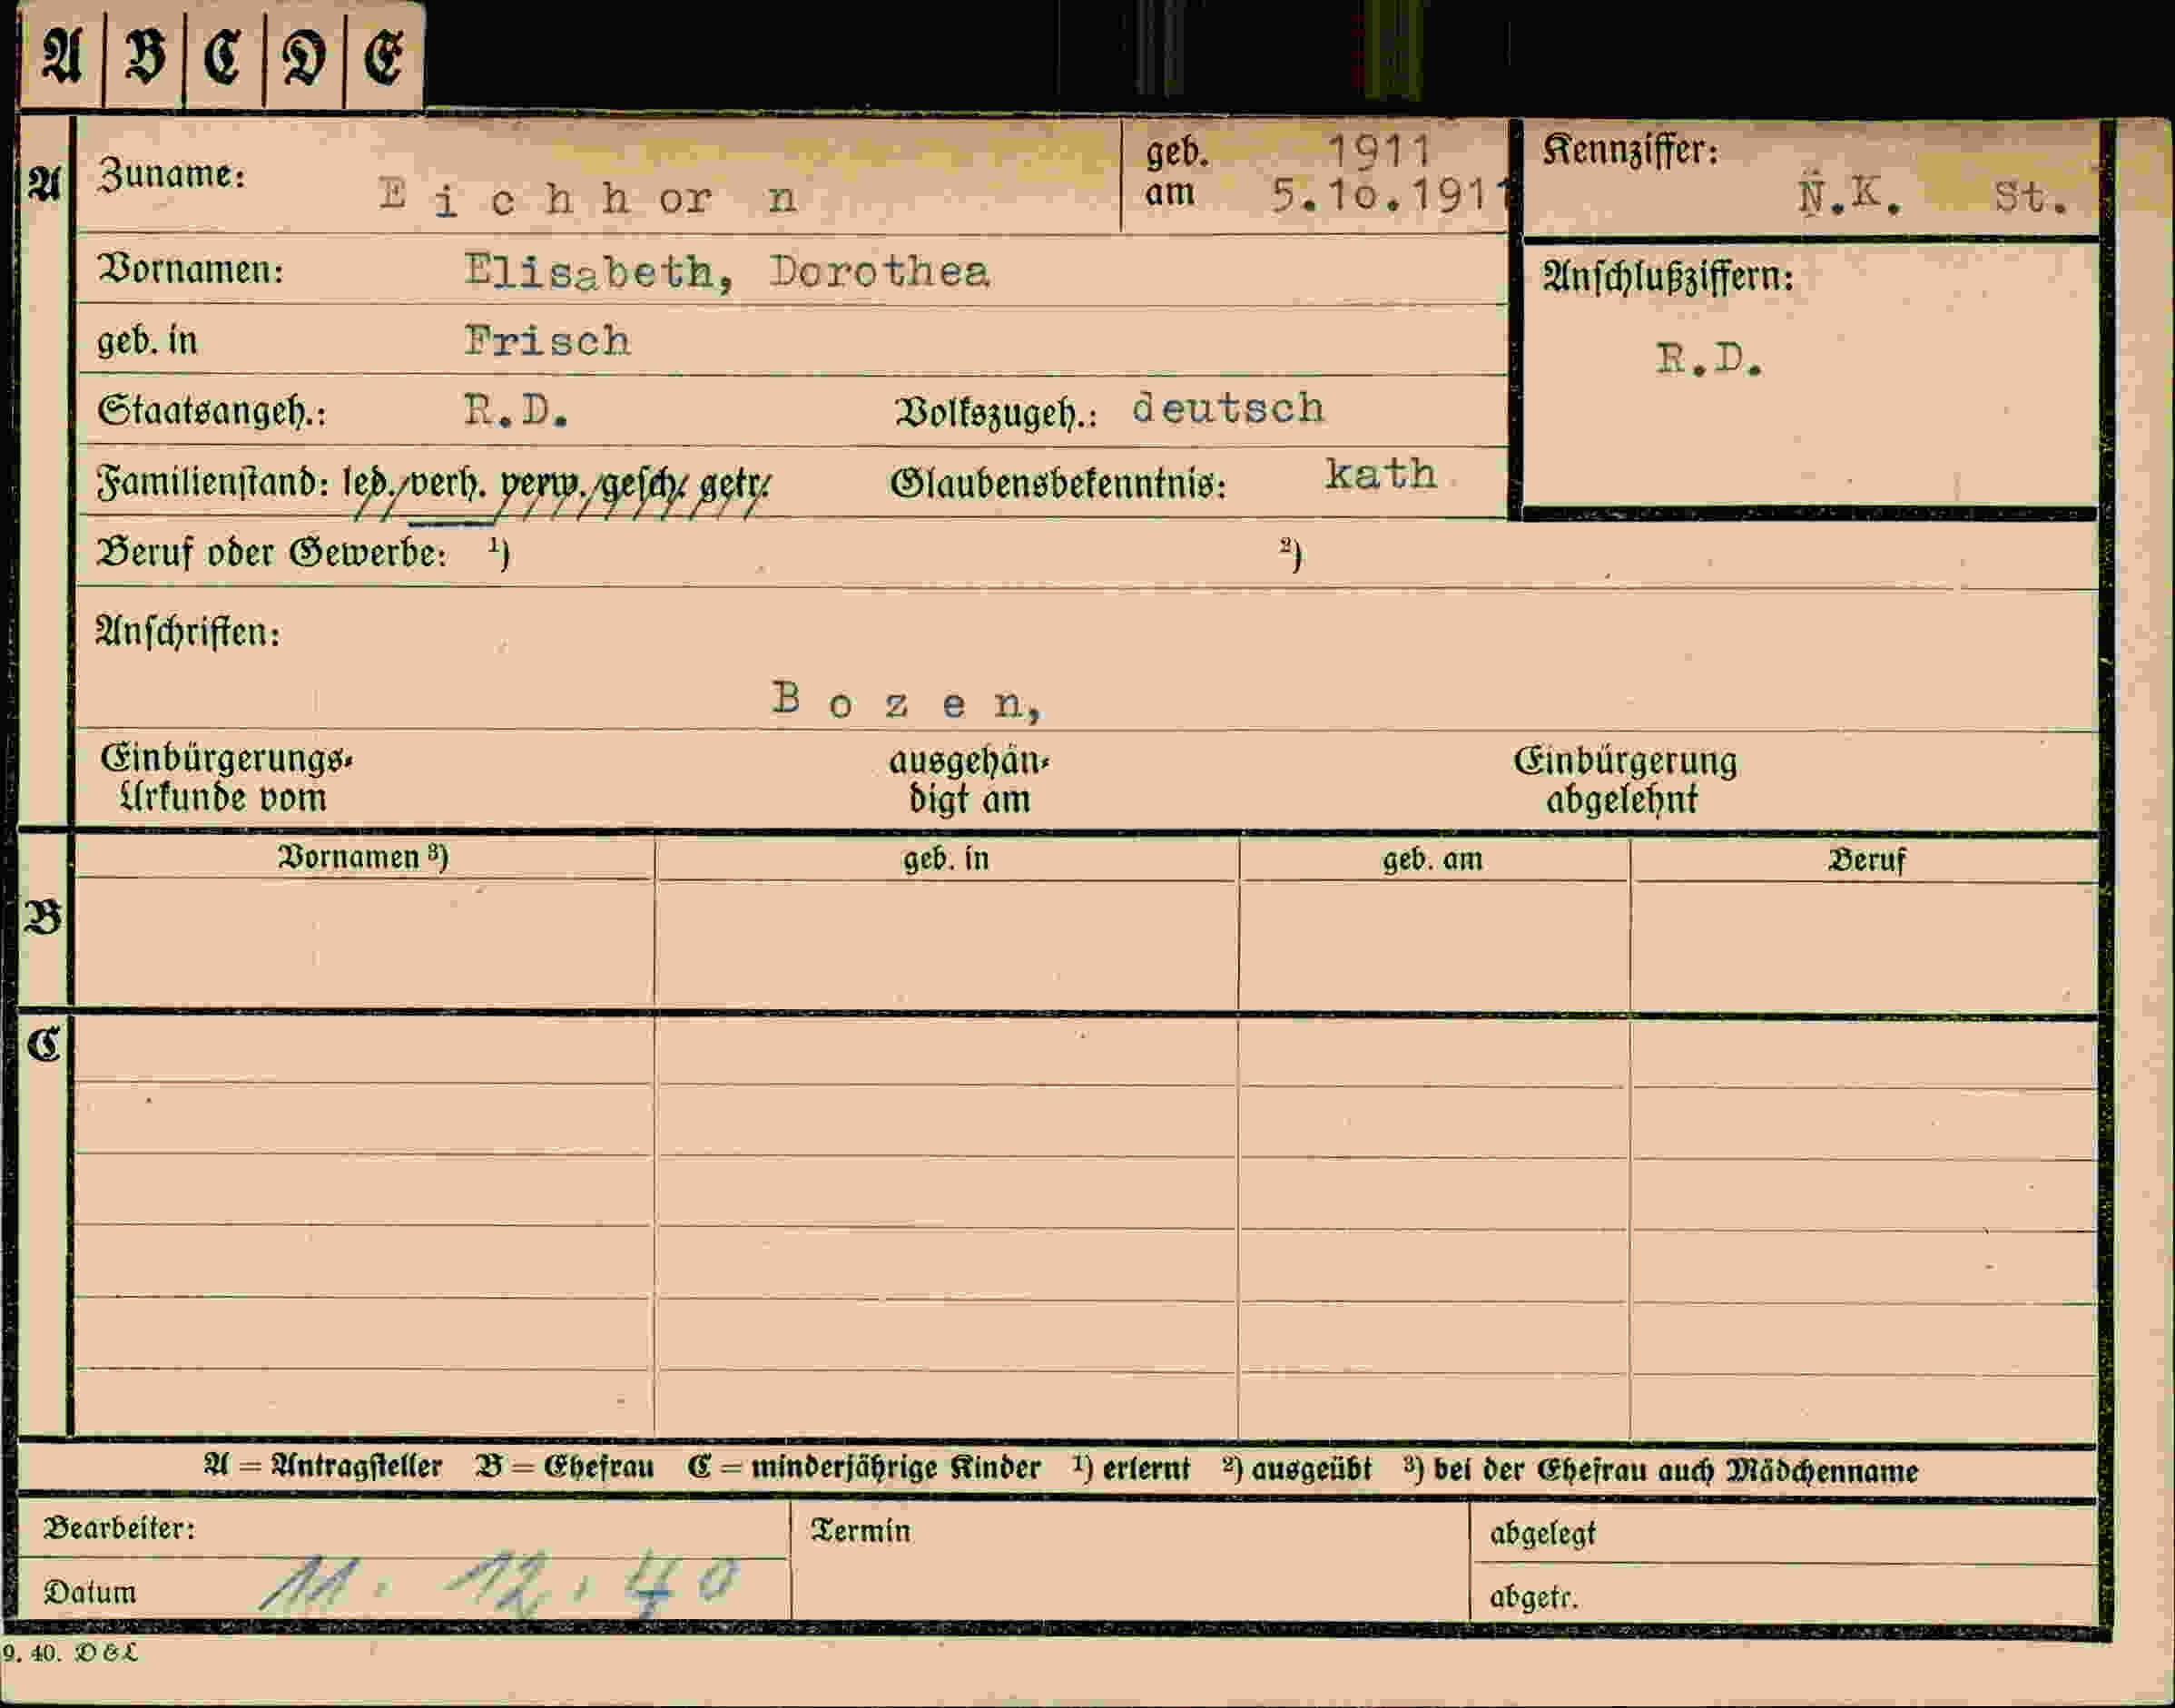 A B C D E
A Zuname: Eichhorn geb. am 1911 5.10.1911 Kennziffer: N.K. St.
Vornamen: Elisabeth, Dorothea Anschlußziffern:
geb. in Frisch R.D.
Staatsangeh.: R.D. Volkszugeh.: deutsch
Familienstand: led. verh. verw. gesch. getr. Glaubensbekenntnis: kath
Beruf oder Gewerbe: ¹) ²)
Anschriften:
Bozen,
Einbürgerungs- ausgehän- Einbürgerung
Urkunde vom digt am abgelehnt
Vornamen ³) geb. in geb. am Beruf
B
C
A = Antragsteller B = Ehefrau C = minderjährige Kinder ¹) erlernt ²) ausgeübt ³) bei der Ehefrau auch Mädchenname
Bearbeiter: Termin abgelegt
Datum 11. 12. 40 abgetr.
9. 40. D & L